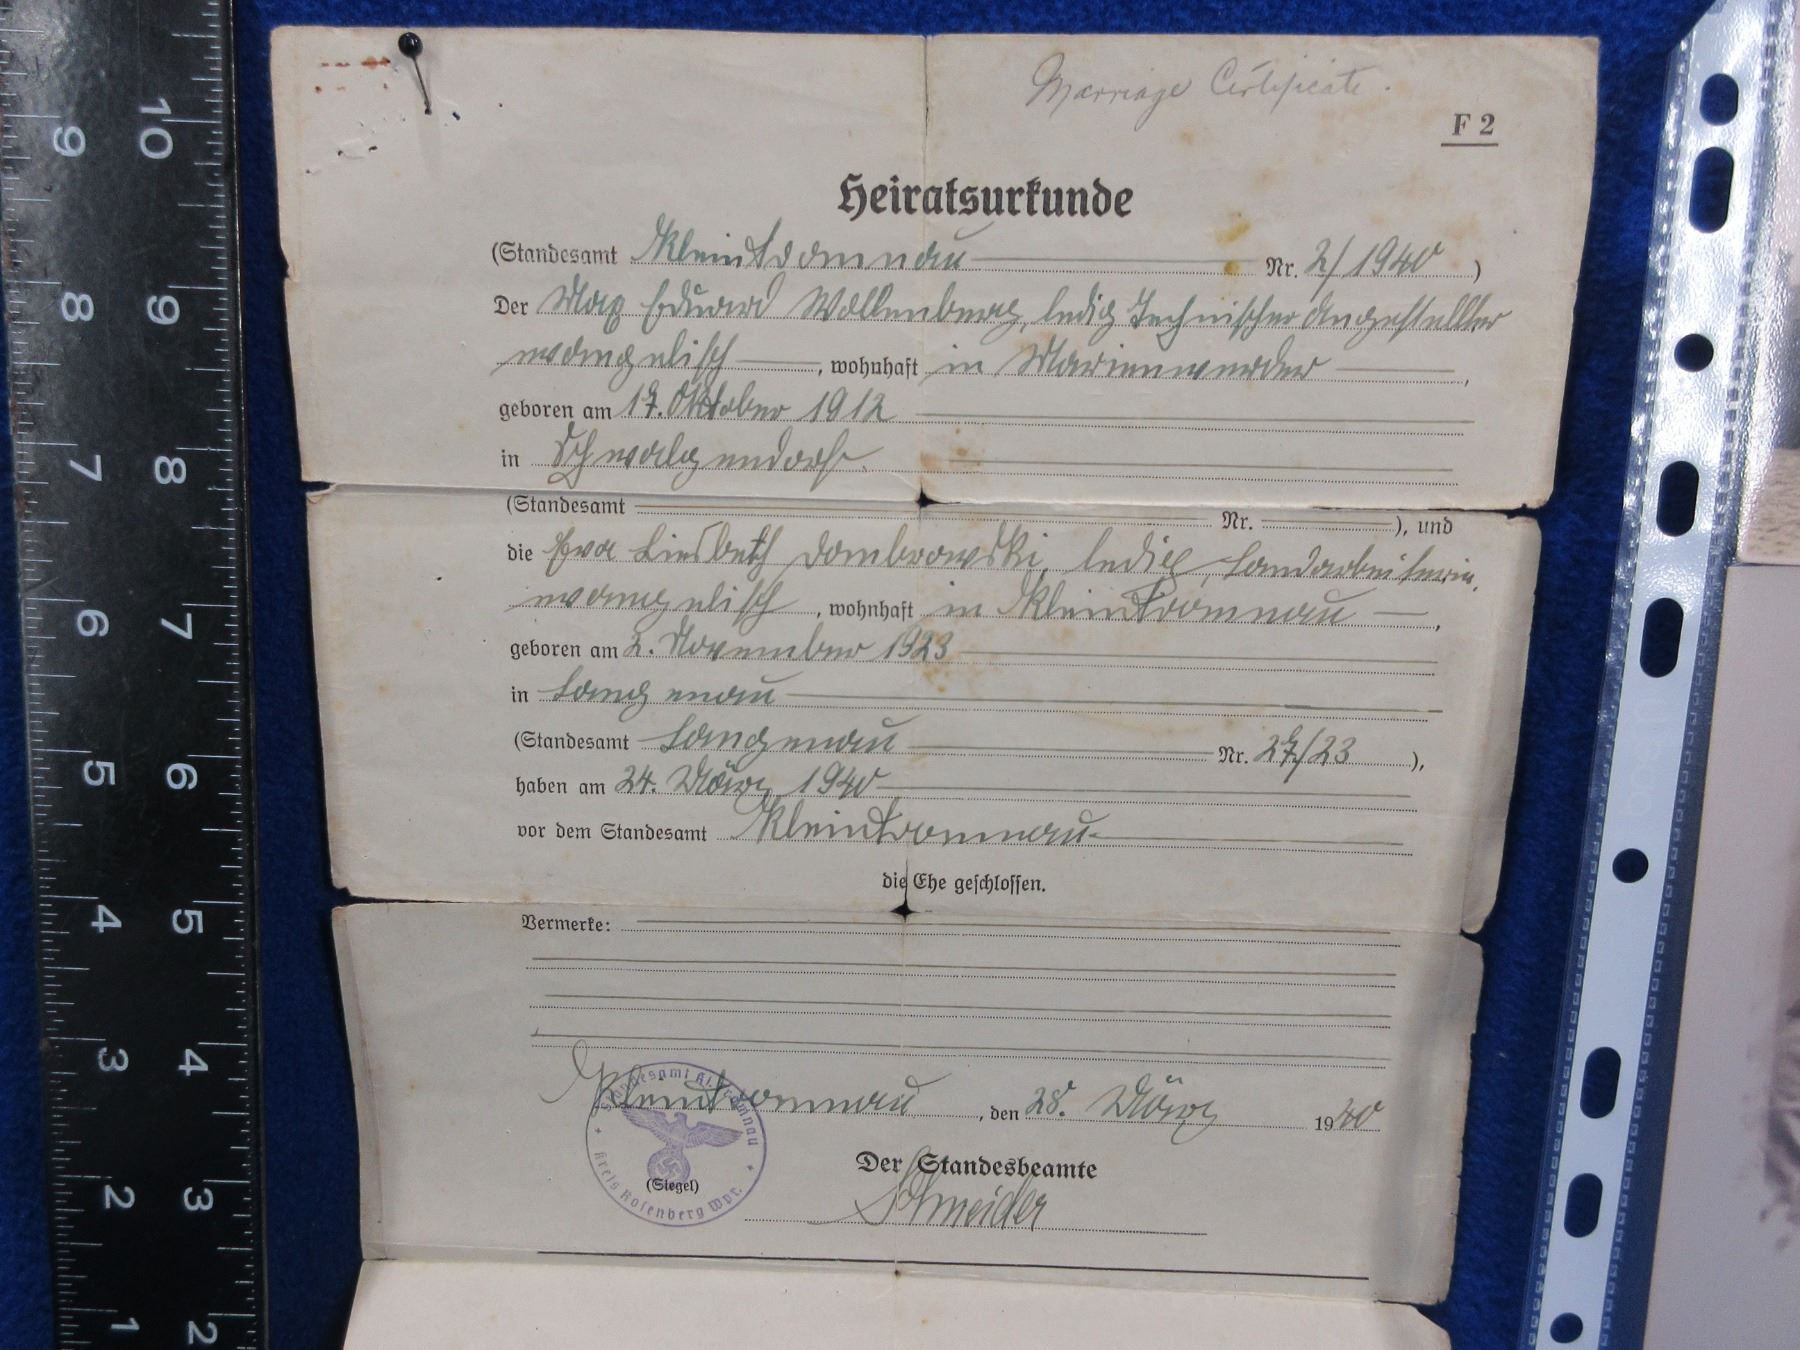 Marriage Certificate.
F 2
Heiratsurkunde
(Standesamt Kleintromnau Nr. 2/1940)
Der Max Eduard Wollenberg, ledig Technischer Angestellter
evangelisch, wohnhaft in Marienwerder,
geboren am 17. Oktober 1912
in Schwalgendorf.
(Standesamt Nr. ), und
die Eva Liesbeth Dombrowski, ledig, Landarbeiterin,
evangelisch, wohnhaft in Kleintromnau,
geboren am 2. November 1923
in Langenau
(Standesamt Langenau Nr. 27/23),
haben am 24. März 1940
vor dem Standesamt Kleintromnau
die Ehe geschlossen.
Vermerke:
Kleintromnau, den 28. März 1940
Standesamt Kl. Tromnau
Kreis Rosenberg Wpr.
(Siegel)
Der Standesbeamte
Schneider
10
9
9
8
8
7
7
6
6
5
5
4
4
3
3
2
2
1